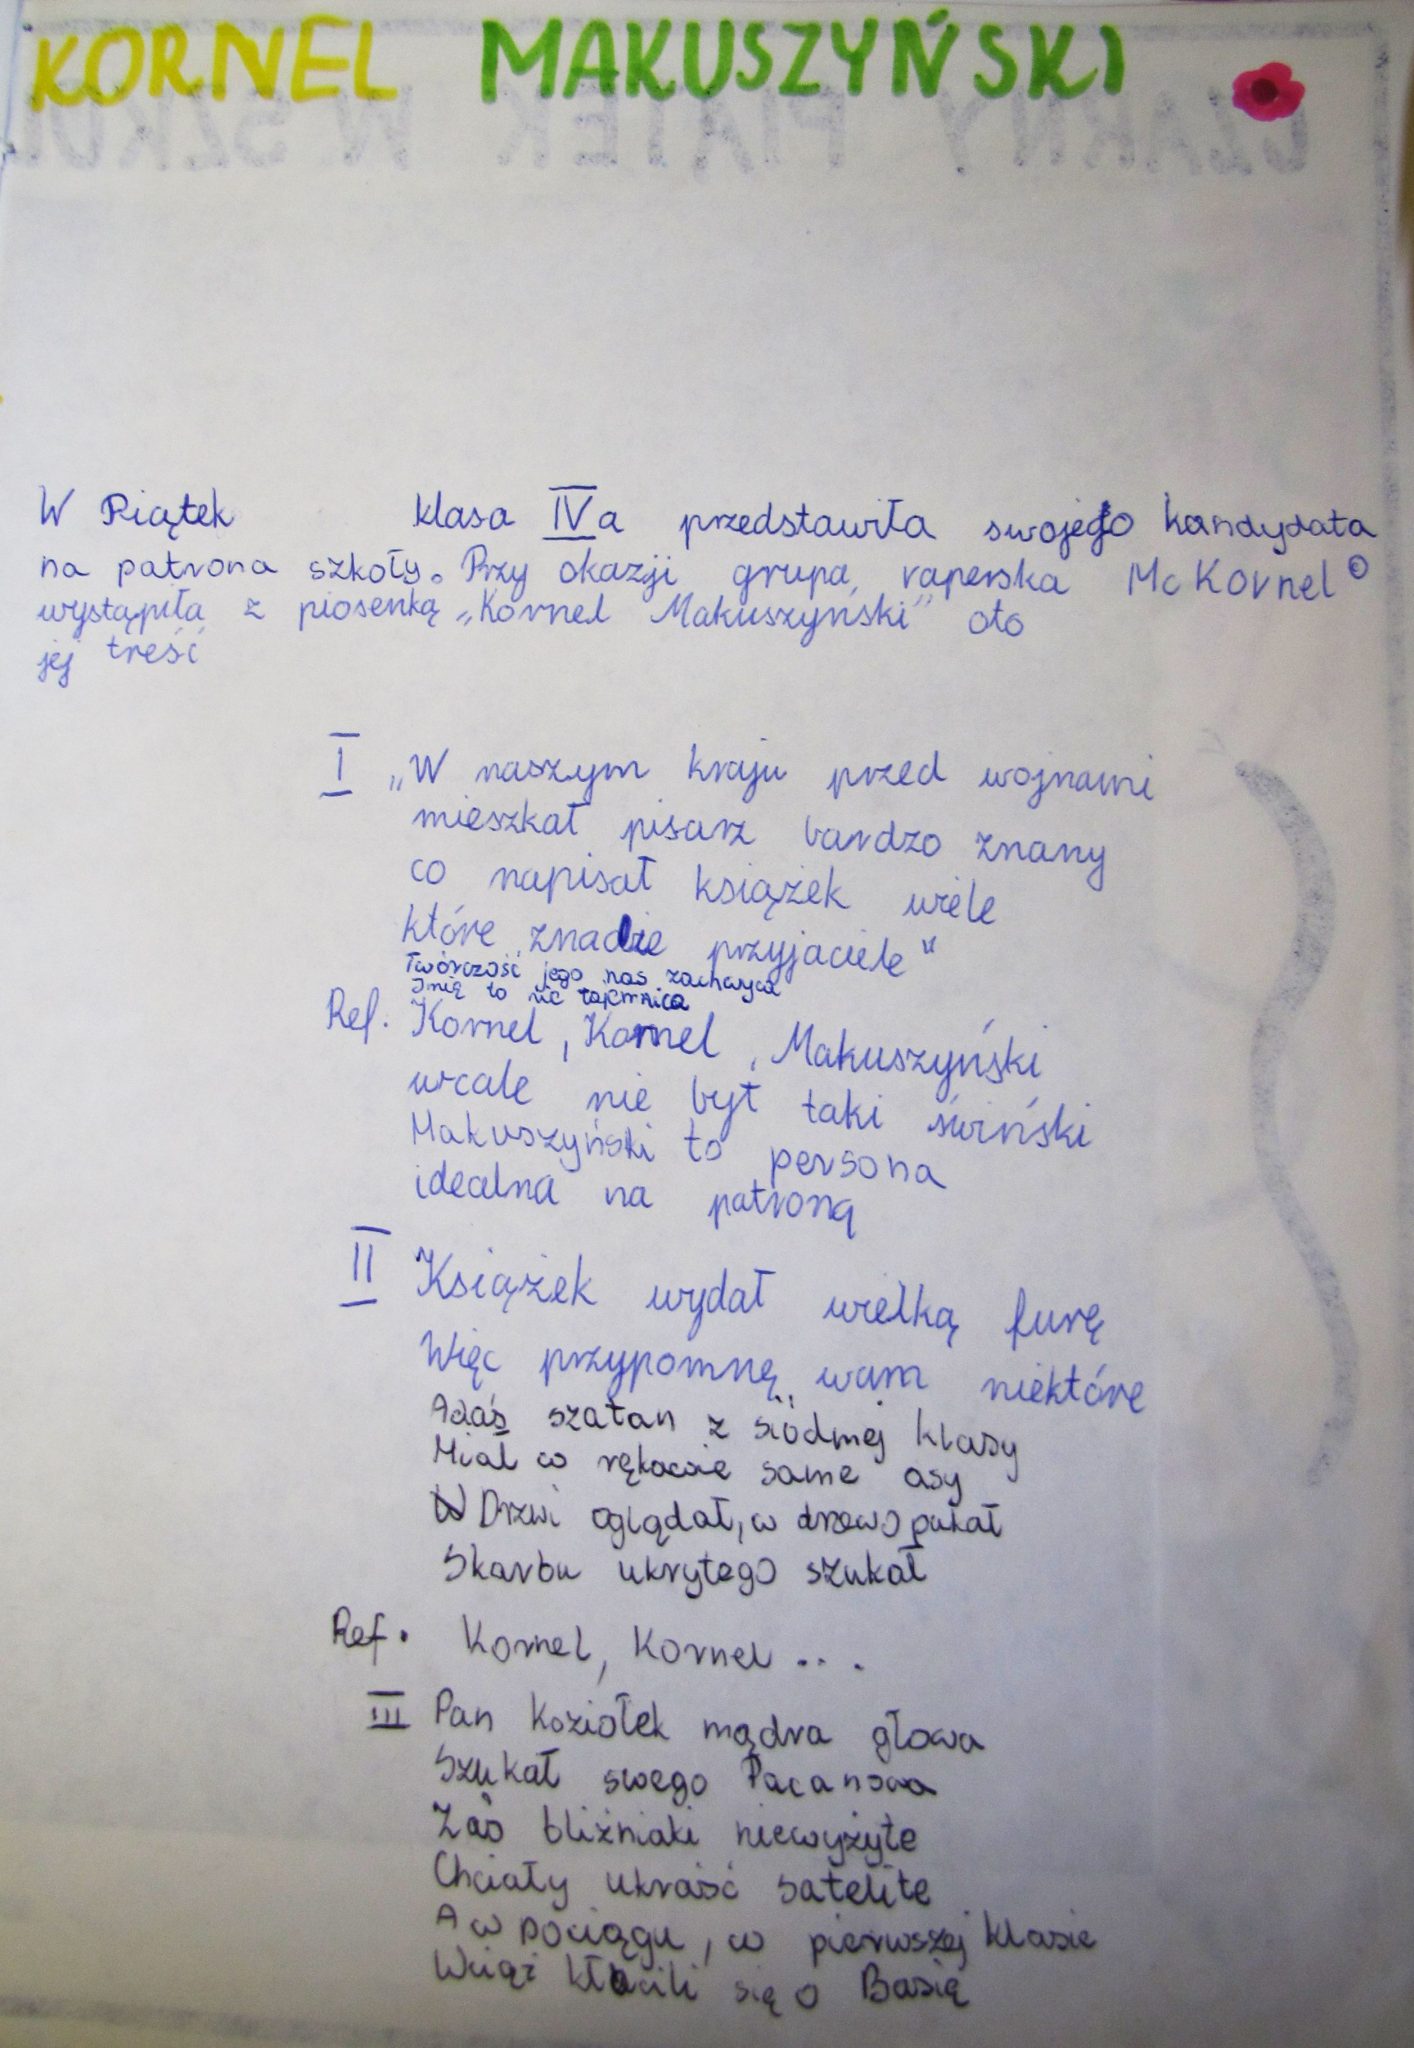 KORNEL MAKUSZYŃSKI
CZARNY PIĄTEK W SZKOL
W Piątek klasa IVa przedstawiła swojego kandydata
na patrona szkoły. Przy okazji grupa raperska Mc Kornel
wystąpiła z piosenką „Kornel Makuszyński” oto
jej treść
I „W naszym kraju przed wojnami
mieszkał pisarz bardzo znany
co napisał książek wiele
które znacie przyjaciele“
Twórczość jego nas zachwyca
Imię to nie tajemnica
Ref. Kornel, Kornel, Makuszyński
wcale nie był taki świński
Makuszyński to persona
idealna na patroną
II Książek wydał wielką furę
Więc przypomnę wam niektóre
Adaś szatan z siódmej klasy
Miał w rękawie same asy
Drzwi oglądał, w drewo pukał
Skarbu ukrytego szukał
Ref. Kornel, Kornel...
III Pan Koziołek mądra głowa
Szukał swego Pacanowa
Zaś bliźniaki niewyżyte
Chciały ukraść satelite
A w pociągu, w pierwszej klasie
Wciąż kłócili się o Basię